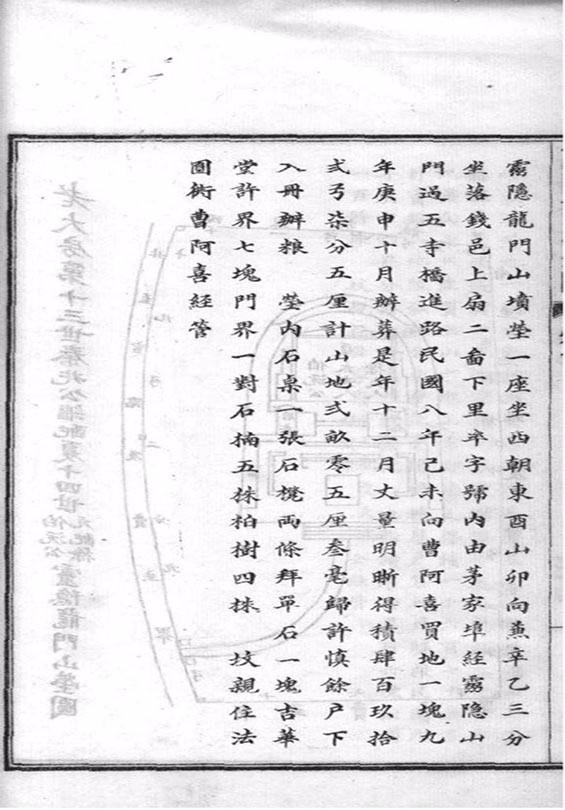 靈隱龍門山墳塋一座坐西朝東酉山卯向兼辛乙三分
坐落錢邑上扇二啚下里卒字號內由茅家埠經靈隱山
門過五寺橋進路民國八年己未向曹阿喜買地一塊九
年庚申十月辦葬是年十二月丈量明晰得積肆百玖拾
弍弓柒分五厘計山地弍畝零五厘叁毫歸許慎餘户下
入冊辦粮　塋內石桌一張石櫈兩條拜單石一塊吉華
堂許界七塊門界一對石楠五株柏樹四株　坟親住法
圓術曹阿喜經管